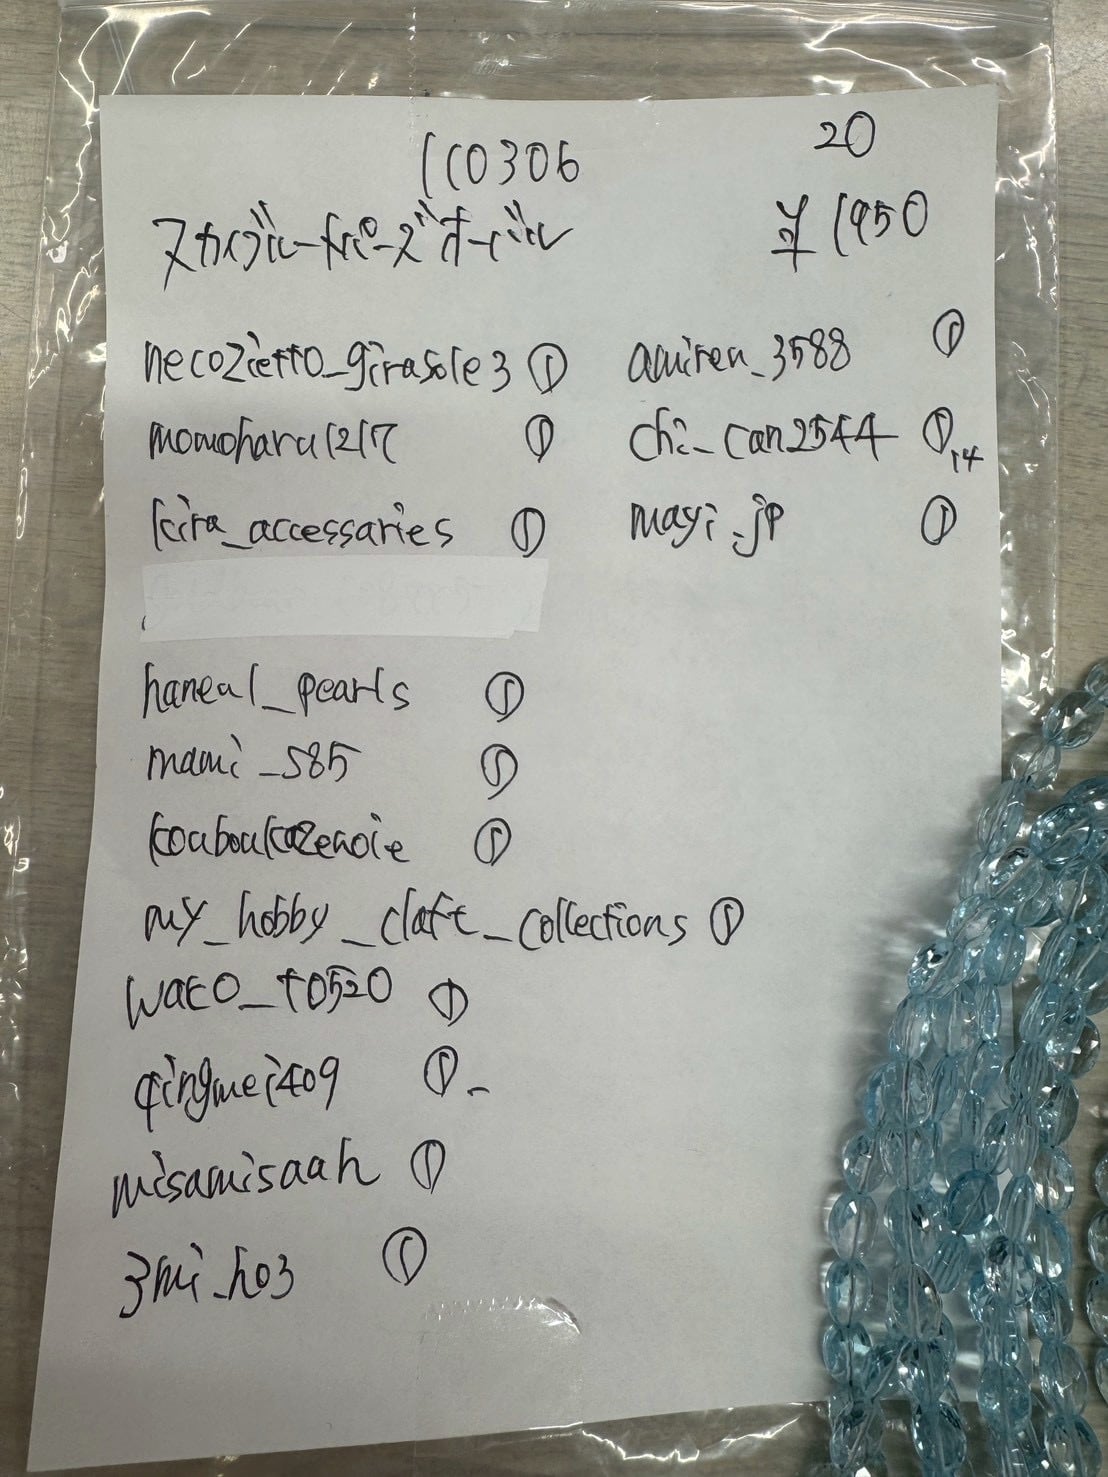 110306
20
スカイブルートパーズオーバル
¥1950
necozietto_girasole3 ①
momoharu1217 ①
kira_accessaries ①
haneul_pearls ①
mami_585 ①
kouboukazenoie ①
my_hobby_claft_collections ①
waco_t0520 ①
qingmei409 ①-
misamisaah ①
3mi_ho3 ①
amiren_3588 ①
chi_can2544 ①,14
mayi.jp ①